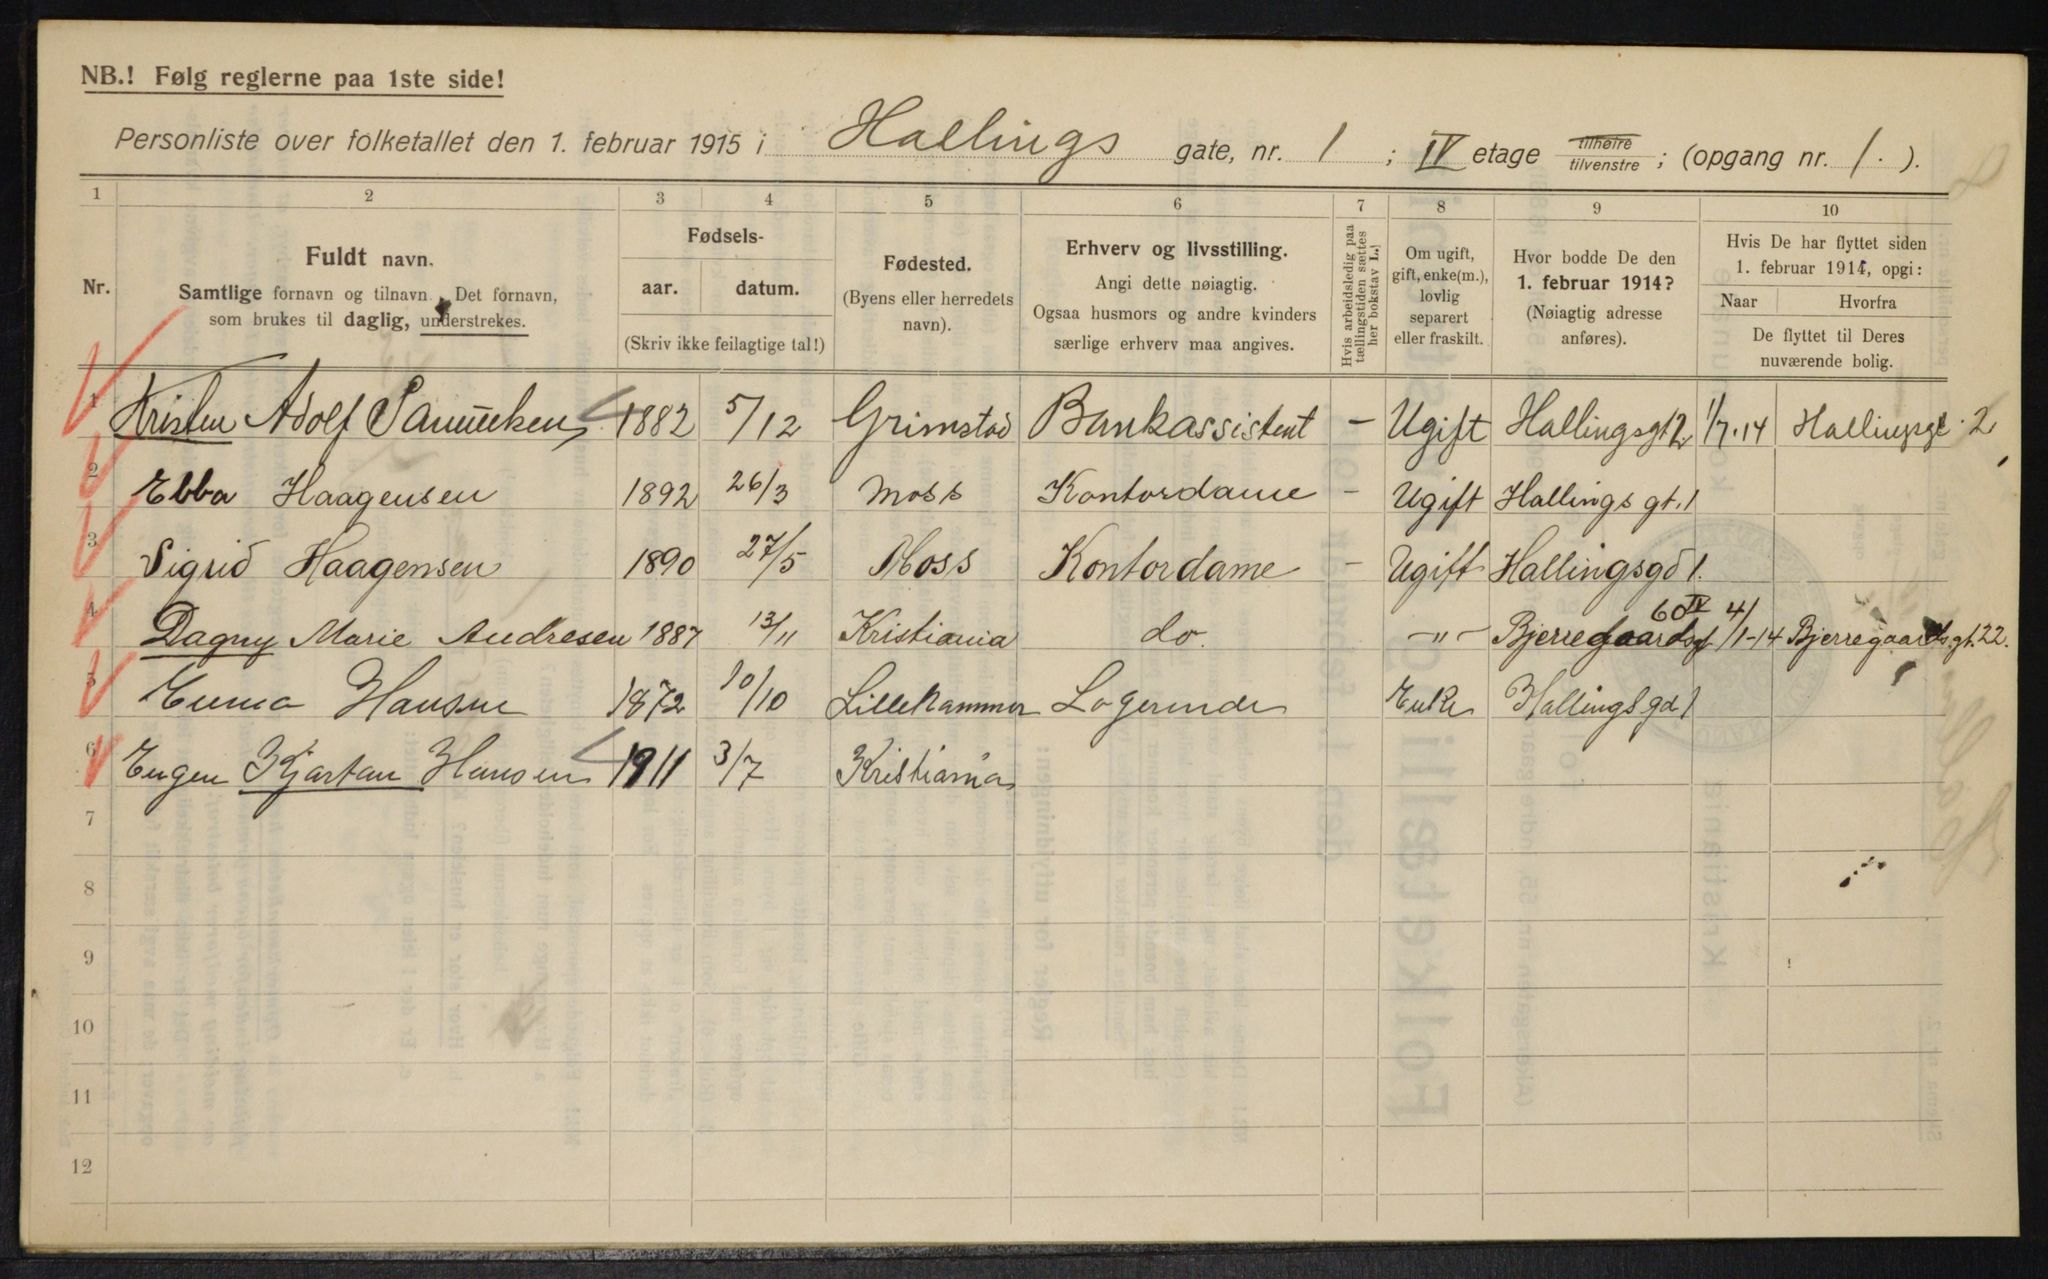 NB.! Følg reglerne paa 1ste side!
Personliste over folketallet den 1. februar 1915 i Hallings gate, nr. 1 ; IV etage tilhøire tilvenstre ; (opgang nr. 1. ).
1 2 3 4 5 6 7 8 9 10
Nr.
Fuldt navn.
Samtlige fornavn og tilnavn. Det fornavn,
som brukes til daglig, understrekes.
Fødsels-
aar. datum.
(Skriv ikke feilagtige tal!)
Fødested.
(Byens eller herredets
navn).
Erhverv og livsstilling.
Angi dette nøiagtig.
Ogsaa husmors og andre kvinders
særlige erhverv maa angives.
Hvis arbeidsledig paa
tællingstiden sættes
her bokstav L.!
Om ugift,
gift, enke(m.),
lovlig
separert
eller fraskilt.
Hvor bodde De den
1. februar 1914?
(Nøiagtig adresse
anføres).
Hvis De har flyttet siden
1. februar 1914, opgi:
Naar Hvorfra
De flyttet til Deres
nuværende bolig.
1 Kristen Adolf 1882 5/12 Grimstad Bankassistent - Ugift Hallingsgt 2 1/7.14 Hallingsgt. 2
2 Ebba Haagensen 1892 26/3 Moss Kontordame - Ugift Hallings gt. 1
3 Sigrid Haagensen 1890 27/5 Moss Kontordame - Ugift Hallingsgd 1.
4 Dagny Marie Andresen 1887 13/11 Kristiania do. -"- Bjerregaardsgt 60 IV 4/1-14 Bjerregaardsgt. 22.
5 Emma Hansen 1872 10/10 Lillehammer Logerinde Enke Hallings gd 1
6 Eugen Kjartan Hansen 1911 3/7 Kristiania
7
8
9
10
11
12